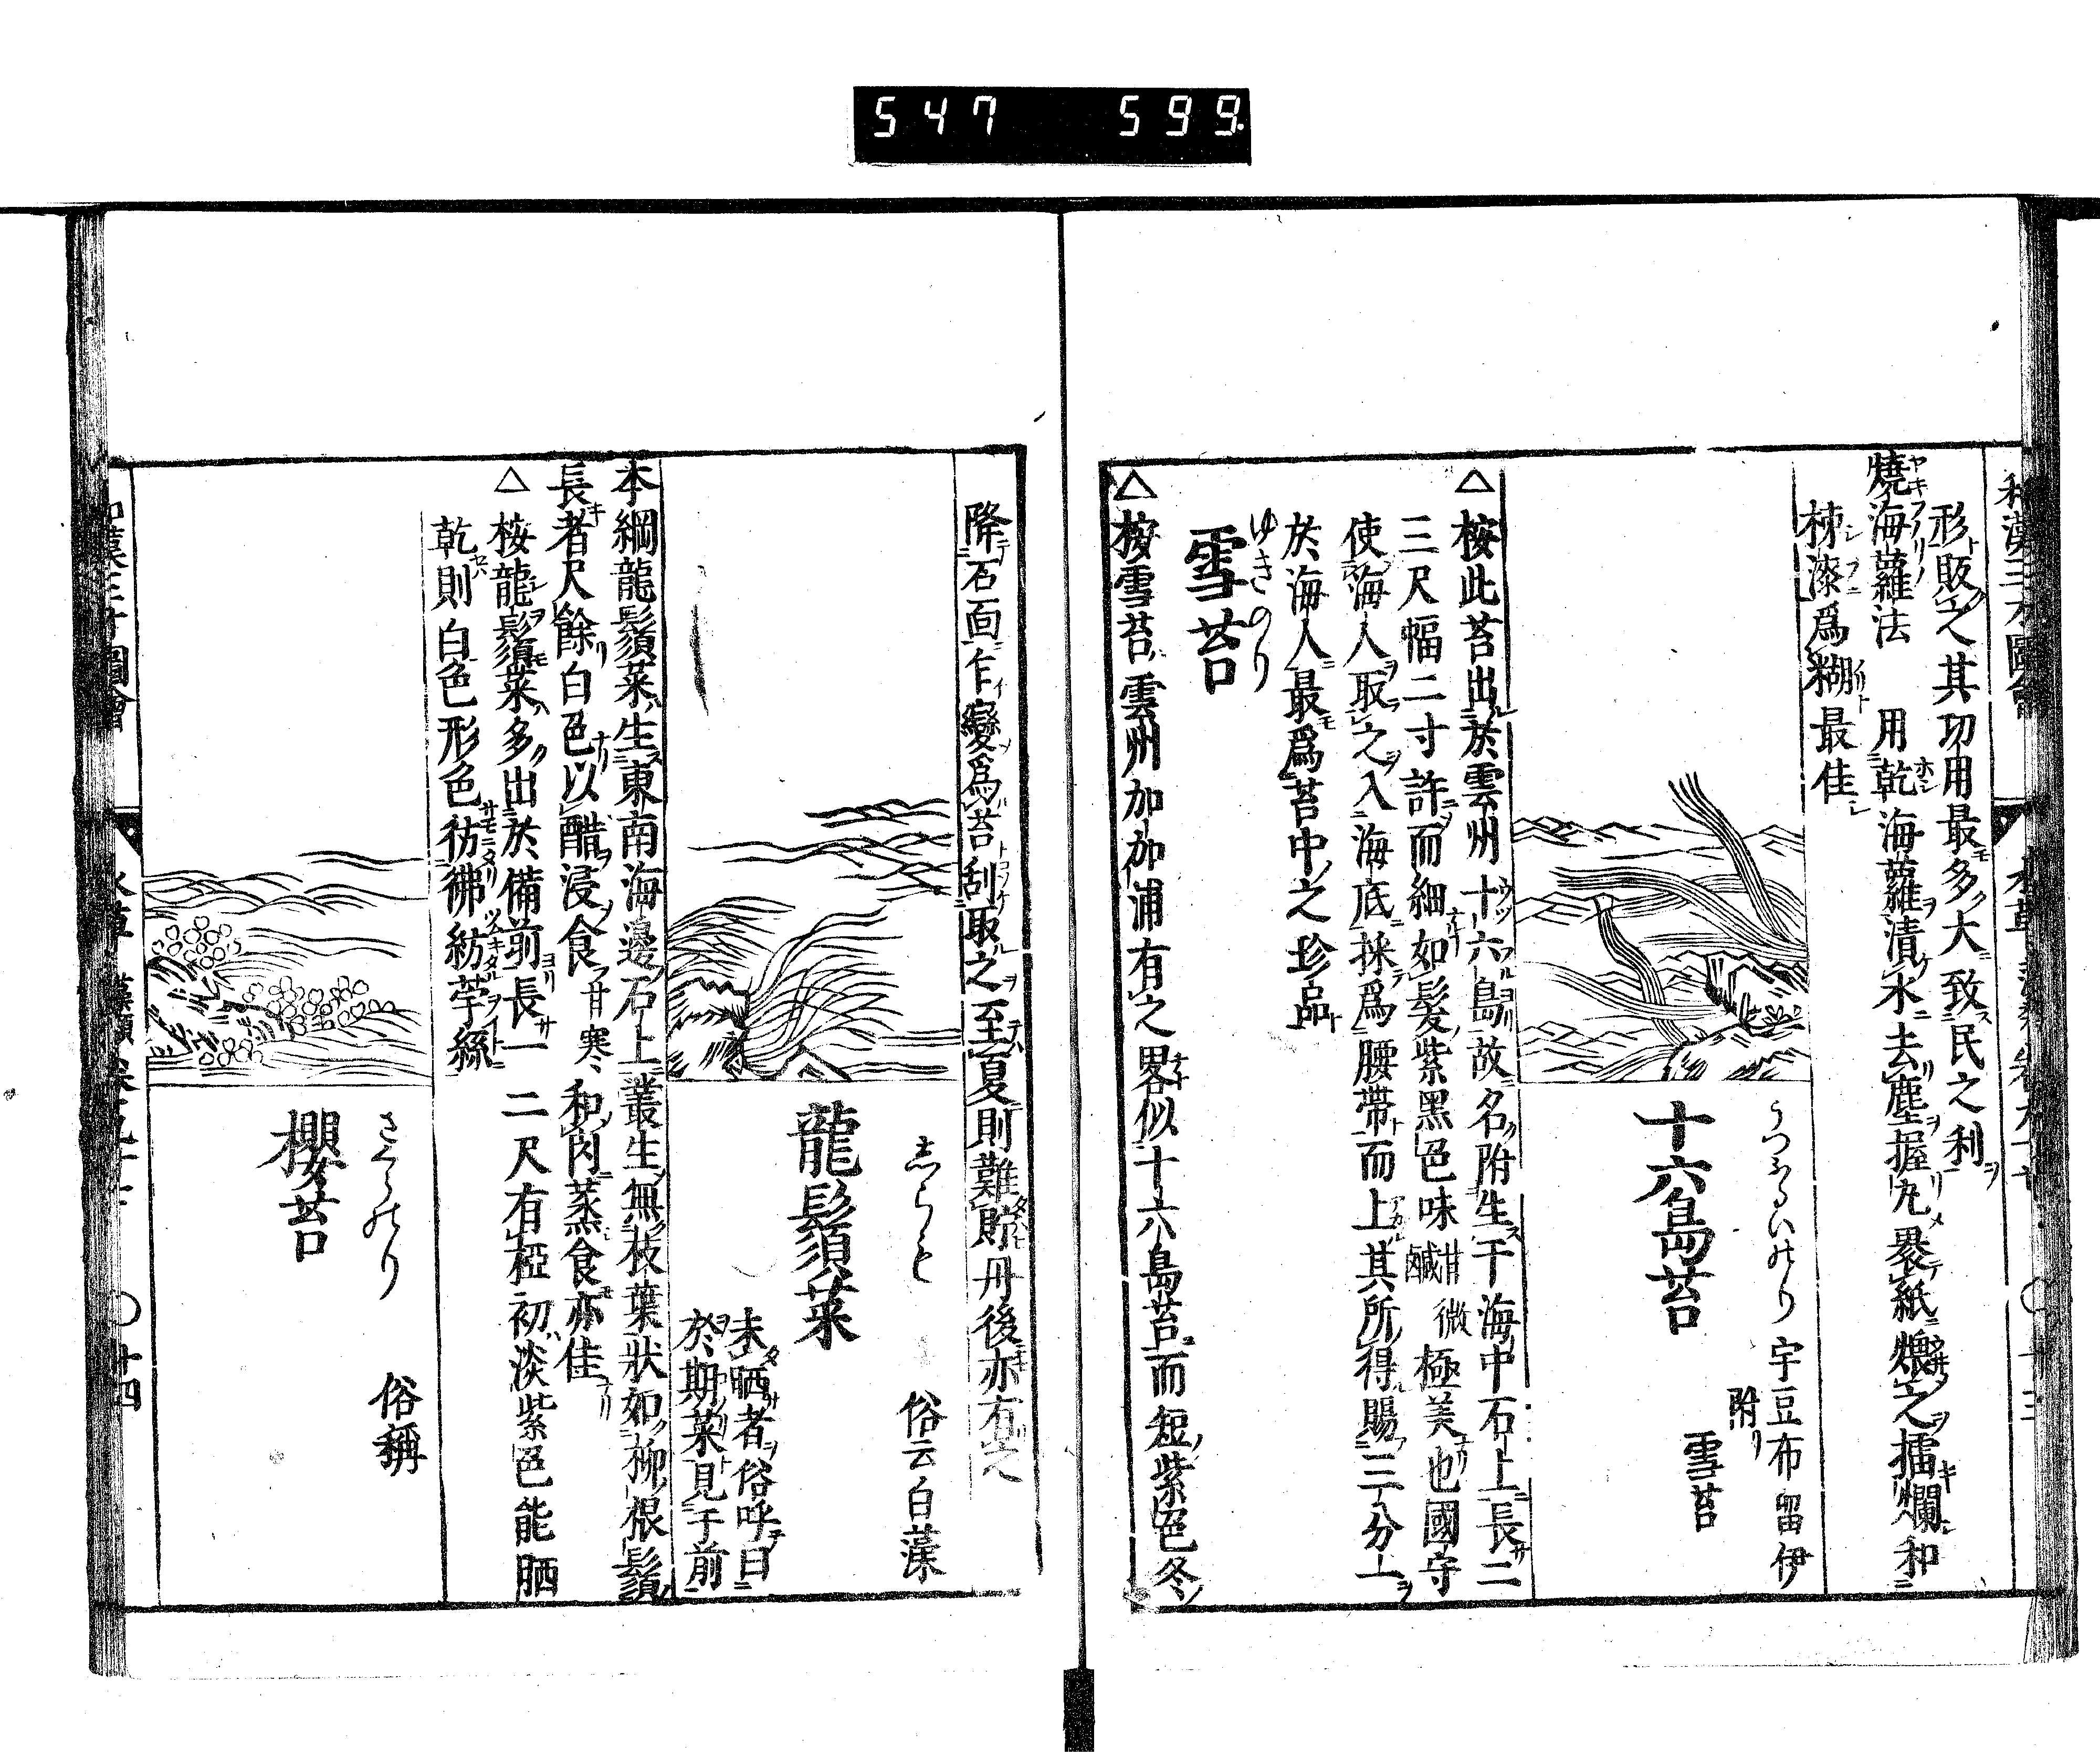 547 599
形販之其功用最多大致民之利
燒海蘿法 用乾海蘿漬水去塵握丸褁紙煨之擂爛和
梜漆爲糊最佳
うつふるいのり
宇豆布留伊
附リ
雪苔
十六島苔
△ 按此苔出於雲州十六島故名附生于海中石上長二
三尺幅二寸許而細如髪紫黑色味甘微鹹極美也國守
使海人取之入海底採爲腰帶而上其所得賜三分一
於海人最爲苔中之珍品
ゆきのり
雪苔
△ 按雪苔雲州加加浦有之畧似十六島苔而短紫色冬
降石面乍變爲苔刮取之至夏則難貯丹後亦有之
しらも
俗云白藻
龍鬚菜
未晒者俗呼曰
於期菜見于前
本綱龍鬚菜生東南海邊石上叢生無枝葉狀如柳根鬚
長者尺餘白色以醋浸食
甘寒
和肉蒸食亦佳
△ 按龍鬚菜多出於備前長一二尺有椏初淡紫色能晒
乾則白色形色彷彿紡苧絲
さくらのり
俗稱
櫻苔
水草 藻類
〇十四